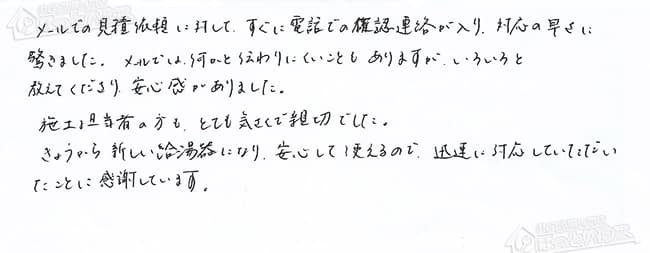 メールでの見積依頼に対して、すぐに電話での確認連絡が入り、対応の早さに
驚きました。メールでは、何かと伝わりにくいこともありますが、いろいろと
教えてくださり、安心感がありました。
施工担当者の方も、とても気さくで親切でした。
きょうから新しい給湯器になり、安心して使えるので、迅速に対応していただい
たことに感謝しています。